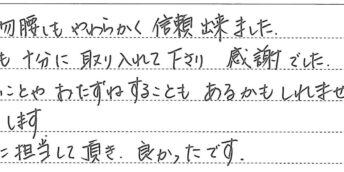 物腰しも やわらかく 信頼出来ました.
も 十分に 取り入れて下さり 感謝でした.
いことや おたずねすることも あるかもしれませ
します
に担当して頂き. 良かったです.